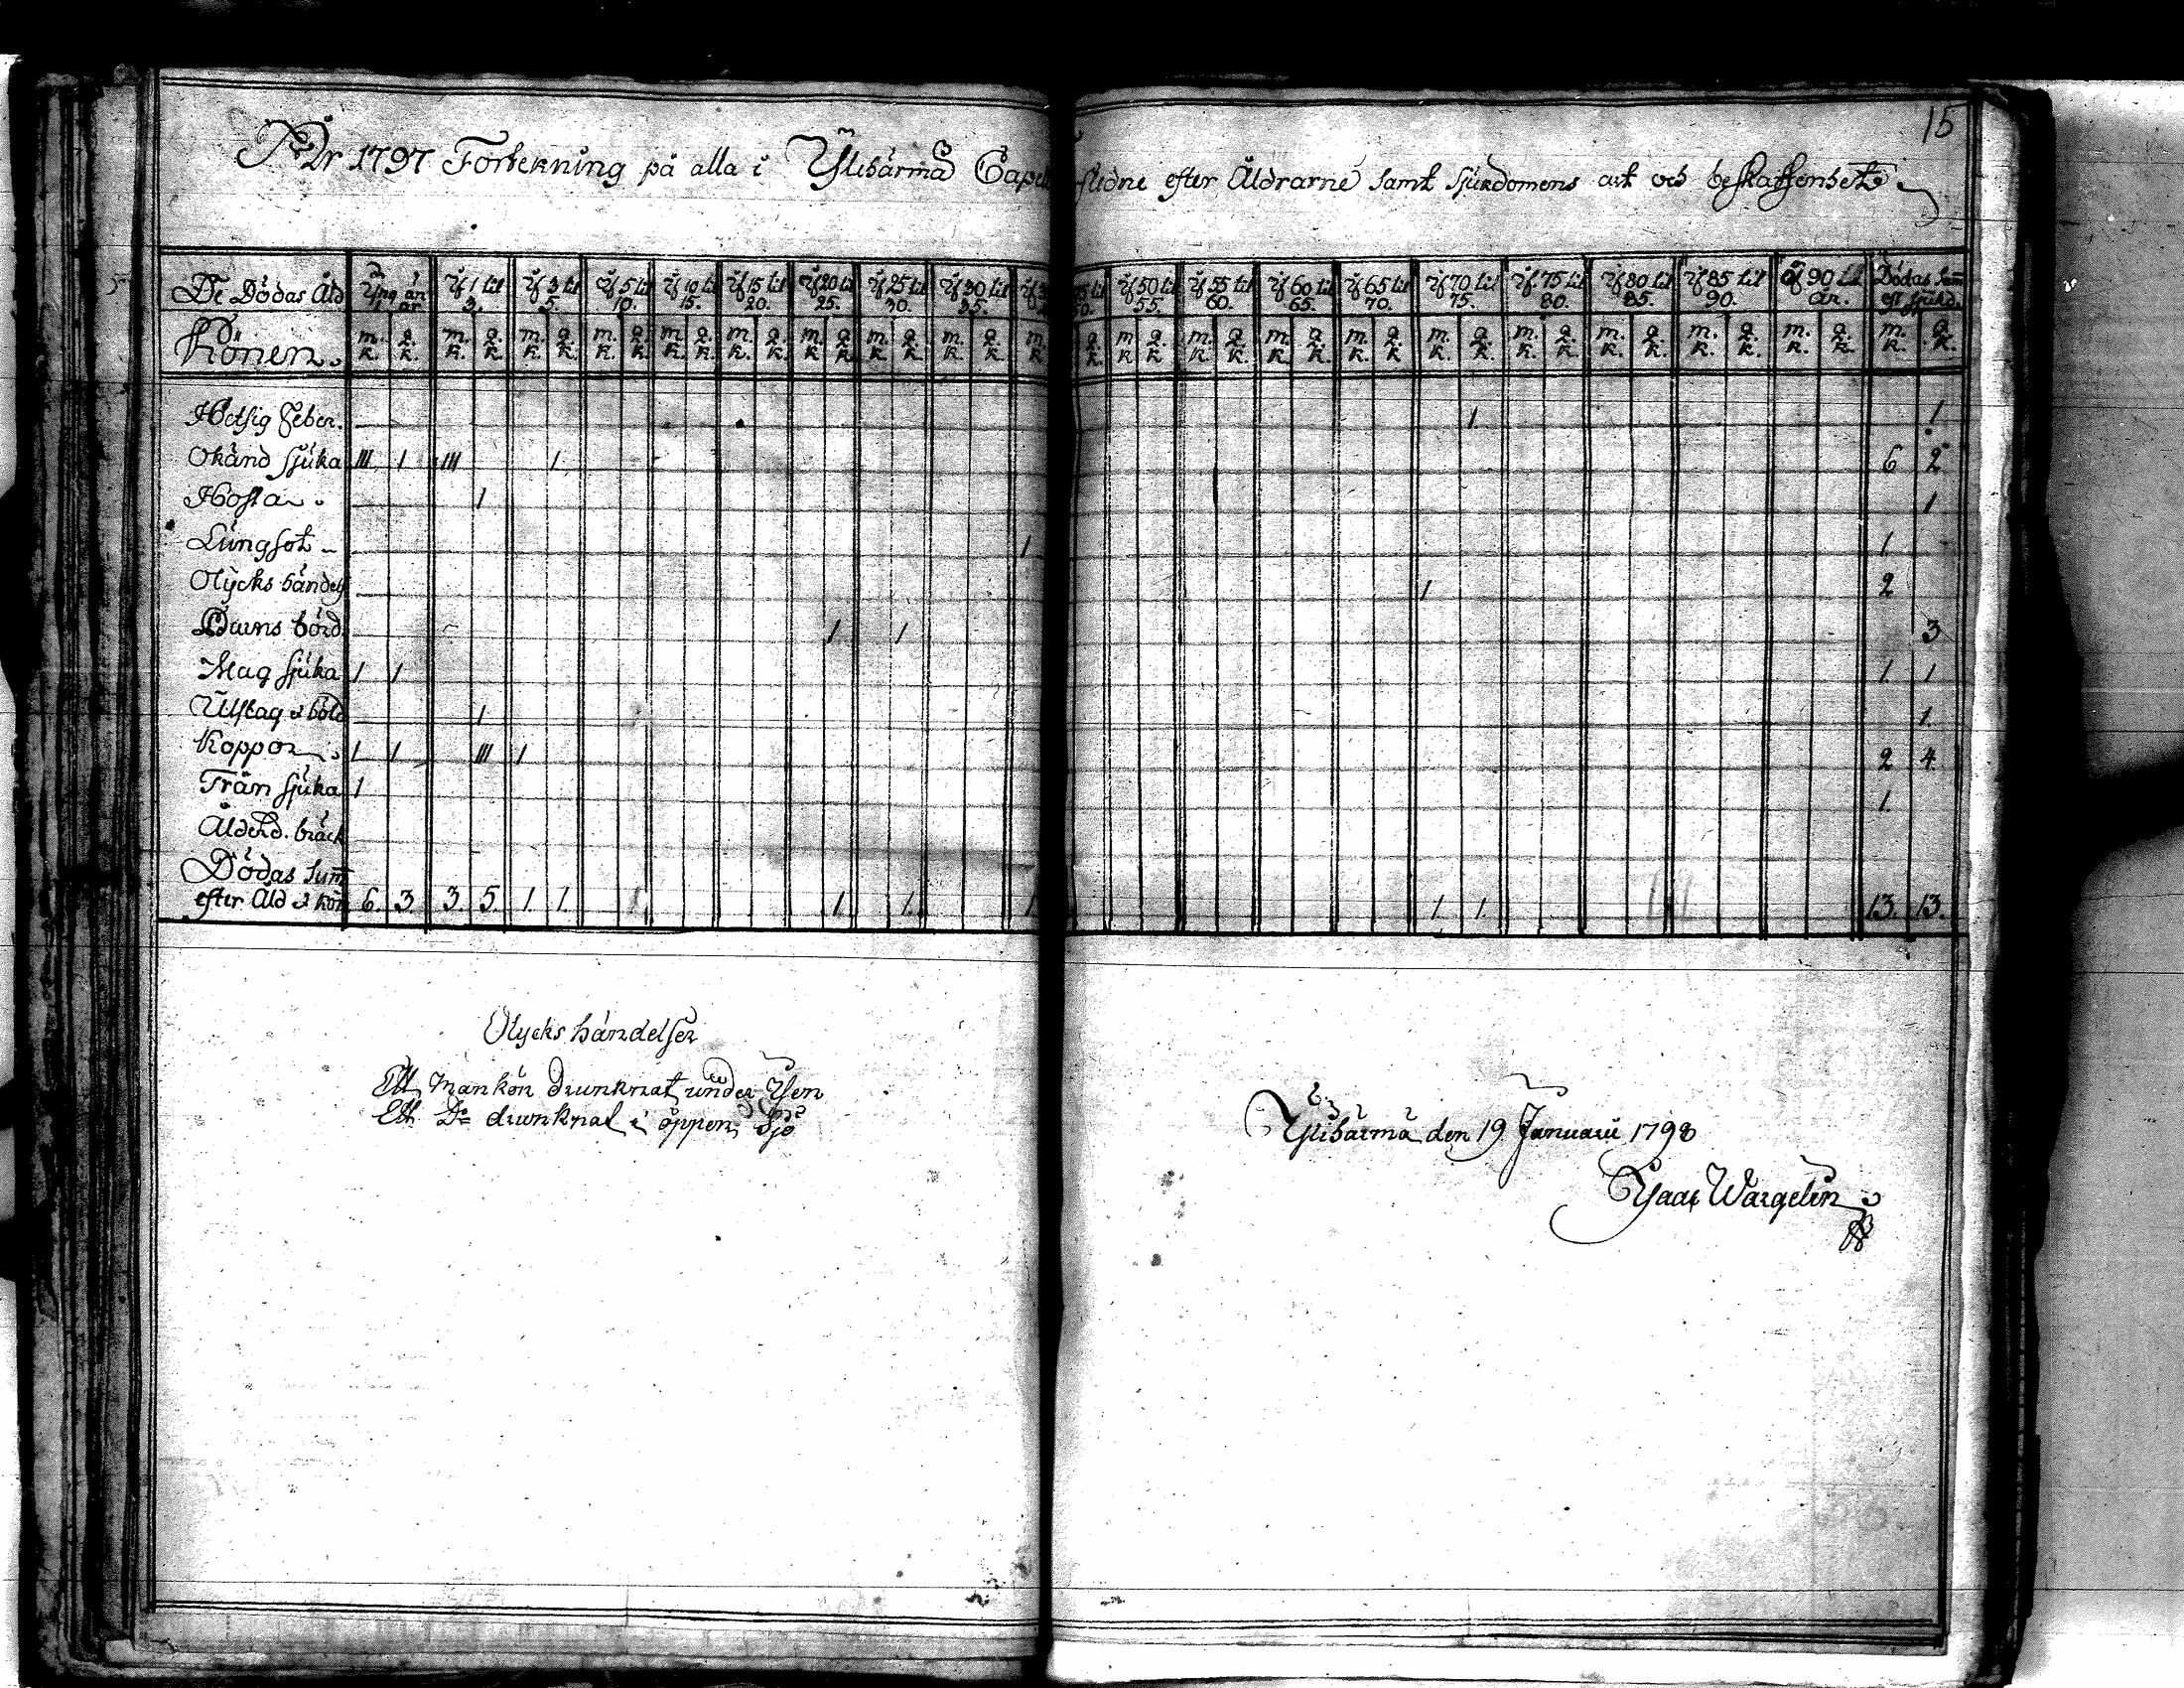 15
År 1797 Förtekning på alla i Ylihärmä Capell fledne efter Åldrarne samt sjukdomens art och beskaffenhet
De Dödas Åld. Yng än 1 år Af 1 til 3. Af 3 til 5. Af 5 til 10. Af 10 til 15. Af 15 til 20. Af 20 til 25. Af 25 til 30. Af 30 til 35. Af 50 til 55. Af 55 til 60. Af 60 til 65. Af 65 til 70. Af 70 til 75. Af 75 til 80. Af 80 til 85. Af 85 til 90. Öf 90 år. Dödas Sum ef. sjukd.
Könen. m.k. q.k. m.k. q.k. m.k. q.k. m.k. q.k. m.k. q.k. m.k. q.k. m.k. q.k. m.k. q.k. m.k. q.k. m.k. q.k. m.k. q.k. m.k. q.k. m.k. q.k. m.k. q.k. m.k. q.k. m.k. q.k. m.k. q.k. m.k. q.k. m.k. q.k. m.k. q.k.
Hetsig Feber. 1 1
Okänd sjuka III 1 III 1 6 2
Hosta 1 1
Lungsot 1 1
Olycks händels 1 2
Barns börd 1 1 3
Mag sjuka 1 1 1 1
Utslag & böld 1 1.
Koppor 1 1 III 1 2 4
Trån sjuka 1 1
Ålderd. bräck
Dödas Sum
efter Åld & kön 6. 3. 3. 5. 1. 1. 1. 1. 1. 1. 1. 13. 13.
Olycks händelser
Ett Mankön drunknat under Isen
Ett Do drunknat i öppen Sjö
Ylihärmä den 19 Januarii 1798
Isaac Wargelin